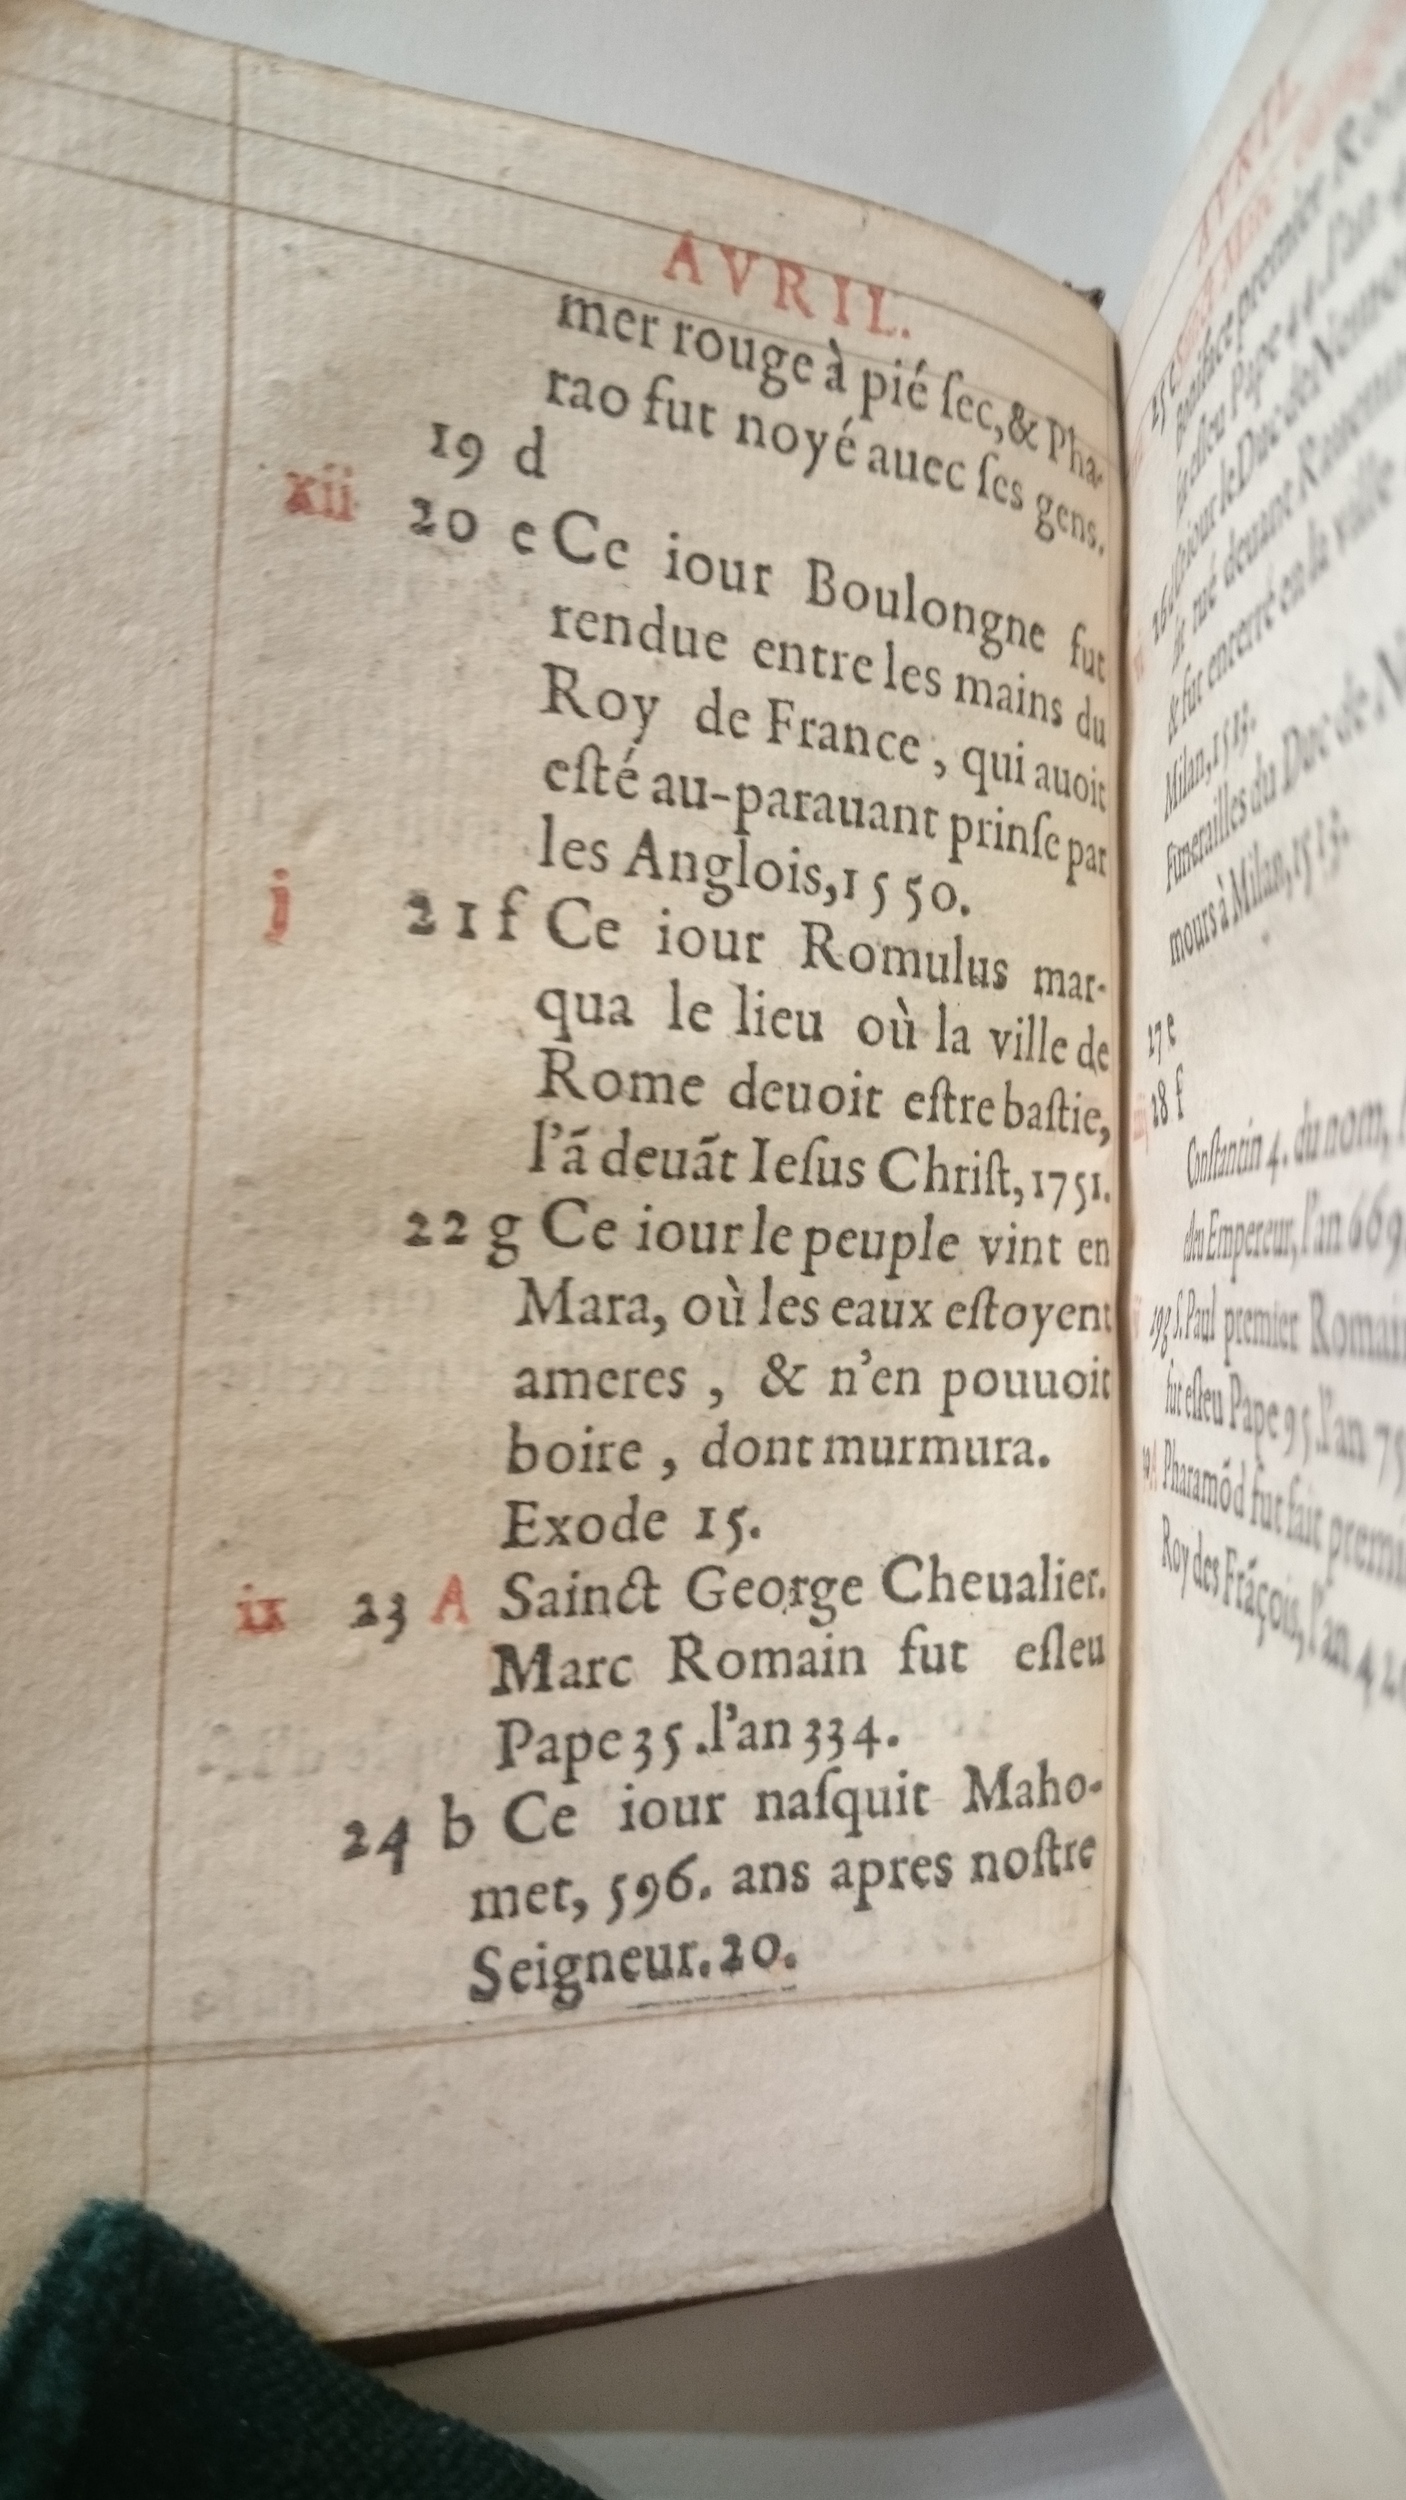 AVRIL.
mer rouge à pié ſec, & Pha-
rao fut noyé auec ſes gens.
19 d
xii 20 e Ce iour Boulongne fut
rendue entre les mains du
Roy de France, qui auoit
eſté au-parauant prinſe par
les Anglois, 1550.
j 21 f Ce iour Romulus mar-
qua le lieu où la ville de
Rome deuoit eſtre baſtie,
l'ã deuãt Ieſus Chriſt, 1751.
22 g Ce iour le peuple vint en
Mara, où les eaux eſtoyent
ameres, & n'en pouuoit
boire, dont murmura.
Exode 15.
ix 23 A Sainct George Cheualier.
Marc Romain fut eſleu
Pape 35. l'an 334.
24 b Ce iour naſquit Maho-
met, 596. ans apres noſtre
Seigneur. 20.
AVRIL
Boniface premier
iour le Duc de
& fut enterré en la ville
Milan, 1513.
Funerailles du Duc de
mours à Milan, 1513.
27 e
28 f
Conſtantin 4. du nom,
eleu Empereur, l'an 669
S. Paul premier Romain
fut eſleu Pape 95. l'an
A Pharamõd fut fait premi
Roy des Frãçois, l'an